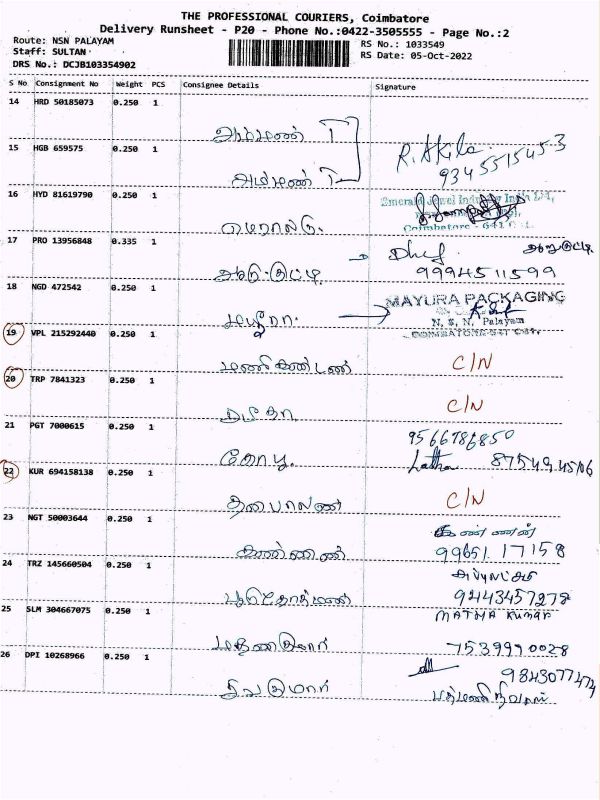 THE PROFESSIONAL COURIERS, Coimbatore
Delivery Runsheet - P20 - Phone No.:0422-3505555 - Page No.:2
Route: NSN PALAYAM
Staff: SULTAN
DRS No.: DCJB103354902
RS No.: 1033549
RS Date: 05-Oct-2022
S No Consignment No Weight PCS Consignee Details Signature
14 HRD 50185073 0.250 1
R. Akila
9345515453
15 HGB 659575 0.250 1
16 HYD 81619790 0.250 1
Emerald Jewel Industry India Ltd,
Coimbatore - 641
17 PRO 13956848 0.335 1
9994511599
18 NGD 472542 0.250 1
மயூரா
MAYURA PACKAGING
N. S. N. Palayam
19 VPL 215292440 0.250 1
மணிகண்டன்
C/N
20 TRP 7841323 0.250 1
C/N
21 PGT 7000615 0.250 1
கோபு.
9566786850
Latha
22 KUR 694158138 0.250 1
தனபாலன்
C/N
23 NGT 50003644 0.250 1
கண்ணன்
கண்ணன்
99651 17158
24 TRZ 145660504 0.250 1
9443457278
25 SLM 304667075 0.250 1
மதன்குமார்
MATHA KUMAR
7539990028
26 DPI 10268966 0.250 1
சிவகுமார்
9843077474